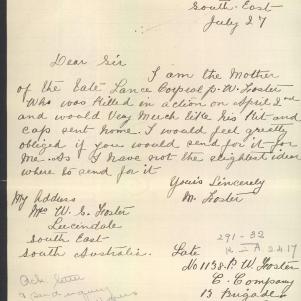 South-East
July 27
Dear Sir
I am the Mother
of the Late Lance Corperal P. W. Foster
Who was Killed in action on April 2nd
and would Very Much like his Kit and
cap sent home. I would feel greatly
obliged if you would send for it for
Me. As I have not the sleightest idear
where to send for it
Yours Sincerely
M. Foster
My Address
Mrs W. S. Foster
Lucindale
South East
South Australia.
291-32
2.4.17
Late
No 1138. P. W. Foster
C. Company
13 Brigade
Ack letter